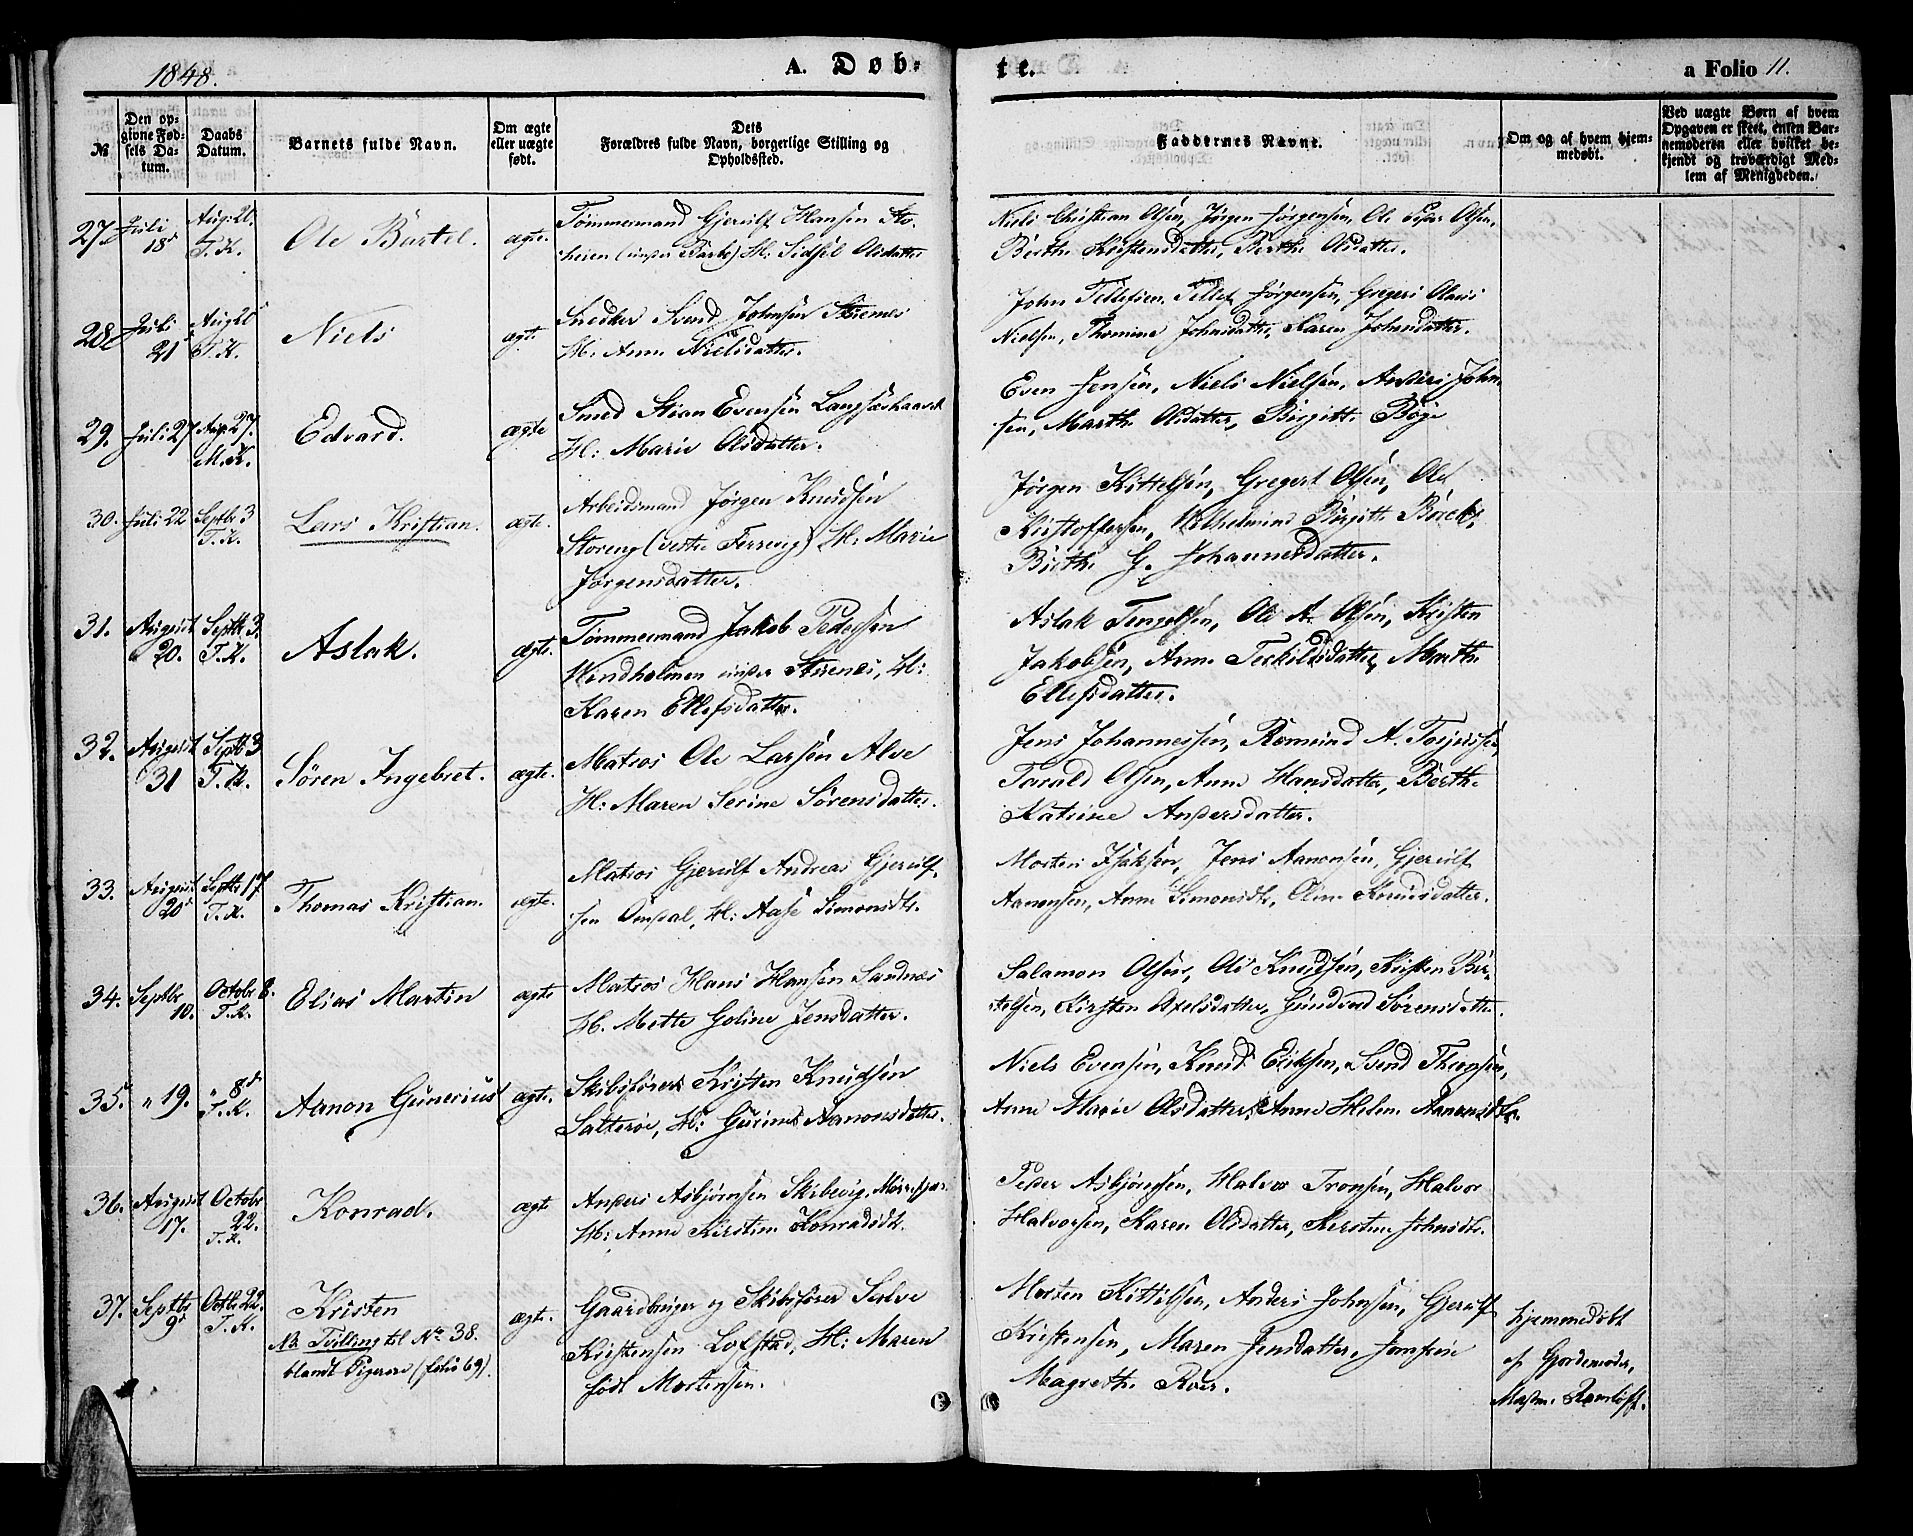 1848.
A. Døb-
te.
a Folio 11.
№
Den op-
givne Fød-
sels Da-
tum.
Daabs
Datum.
Barnets fulde Navn.
Om ægte
eller uægte
født.
Dets
Forældres fulde Navn, borgerlige Stilling og
Opholdssted.
Faddernes Navne.
Om og af hvem hjem-
medøbt.
Ved uægte Børn af hvem
Opgaven er skeet, enten Bar-
nemoderen eller hvilket be-
kjendt og troværdigt Med-
lem af Menigheden.
27
Juli
18d
Aug: 20
T. K.
Ole Bartel.
ægte.
Tømmermand Gjerulf Hansen Sto-
H: Sidsel Olsdatter
Niels Christian Olsen, Jørgen Jørgensen, Ole Olsen,
Berthe Kristensdatter, Berthe Olsdatter.
28
Juli
21
Aug 20
T. K.
Niels
ægte
Snedker Svend Johnsen Strømes
H: Anne Nielsdatter.
John Tellefsen, Tellef Jørgensen, Gregers Olaus
Nielsen, Thomine Johnsdatter, Karen Johnsdatter.
29.
Juli 27
Aug. 27.
M. K.
Edvard.
ægte
Smed Stian Evensen
H: Marie Olsdatter.
Even Jensen, Niels Nielsen, Anders John-
sen, Marthe Olsdatter, Birgitte Bøge
30.
Juli 22
Septbr 3
T. K.
Lars Kristian.
ægte.
Arbeidsmand Jørgen Knudsen
Storeng (vestre Ferrevig) H: Marie
Jørgensdatter.
Jørgen Kittelsen, Gregert Olsen, Ole
Kristoffersen, Wilhelmine Birgitte
Birthe G. Johannesdatter.
31.
August
20.
Septbr 3.
T. K.
Aslak.
ægte.
Tømmermand Jakob Pedersen
Windholmen under Strenes, H:
Karen Ellefsdatter.
Aslak Tengelsen, Ole A. Olsen, Kristen
Jakobsen, Anne Terkildsdatter, Marthe
Ellefsdatter.
32.
August
31
Septb 3
T. K.
Søren Ingebret.
ægte.
Matros Ole Larsen Alve
H: Maren Serine Sørensdatter.
Jens Johannessen, Romund A. Torjussen,
Tarald Olsen, Anne Hansdatter, Berthe
Katrine Andersdatter.
33.
August
20d
Septbr 17
T. K.
Thomas Kristian.
ægte.
Matros Gjerulf Andreas Gjerulf-
sen Omdal, H: Aase Simonsdtr.
Morten Isaksen, Jens Aanonsen, Gjerulf
Aanonsen, Anne Simonsdtr, Oline Knudsdatter.
34.
Septbr
10.
Octobr 8.
T. K.
Elias Martin
ægte
Matros Hans Hansen Sandnes
H. Mette Goline Jensdatter.
Salamon Olsen, Ole Knudsen, Kristen Ber-
telsen, Kirsten Axelsdatter, Gundvod Sørensdatter.
35.
" 19.
" 8d
T. K.
Aanon Gunerius
ægte.
Skibsfører Kristen Knudsen
Salterøe, H: Gurine Aanonsdatter.
Niels Evensen, Knud Eriksen, Svend Thorsen,
Anne Marie Olsdatter, Anne Helene Aanonsdtr.
36.
August
17.
Octobr
22.
T. K.
Konrad.
ægte
Anders Asbjørnsen Skibevig,
H: Anne Kirstine Konradsdtr.
Peder Asbjørnsen, Halvor Tronsen, Halvor
Halvorsen, Karen Olsdatter, Kirstine Johnsdtr.
37.
Septbr
9d
Octbr 22.
T. K.
Kristen
NB Tvilling til No 38.
blandt Pigerne (folio 69).
ægte.
Gaardbruger og Skibsfører Salve
Kristensen Lofstad, H: Maren
født Mortensen.
Morten Kittelsen, Anders Johnsen, Gjerulf
Kristensen, Maren Jensdatter, Jomfrue
Magrethe Roer.
hjemmedøbt
af Gjordemoder,
Madm.